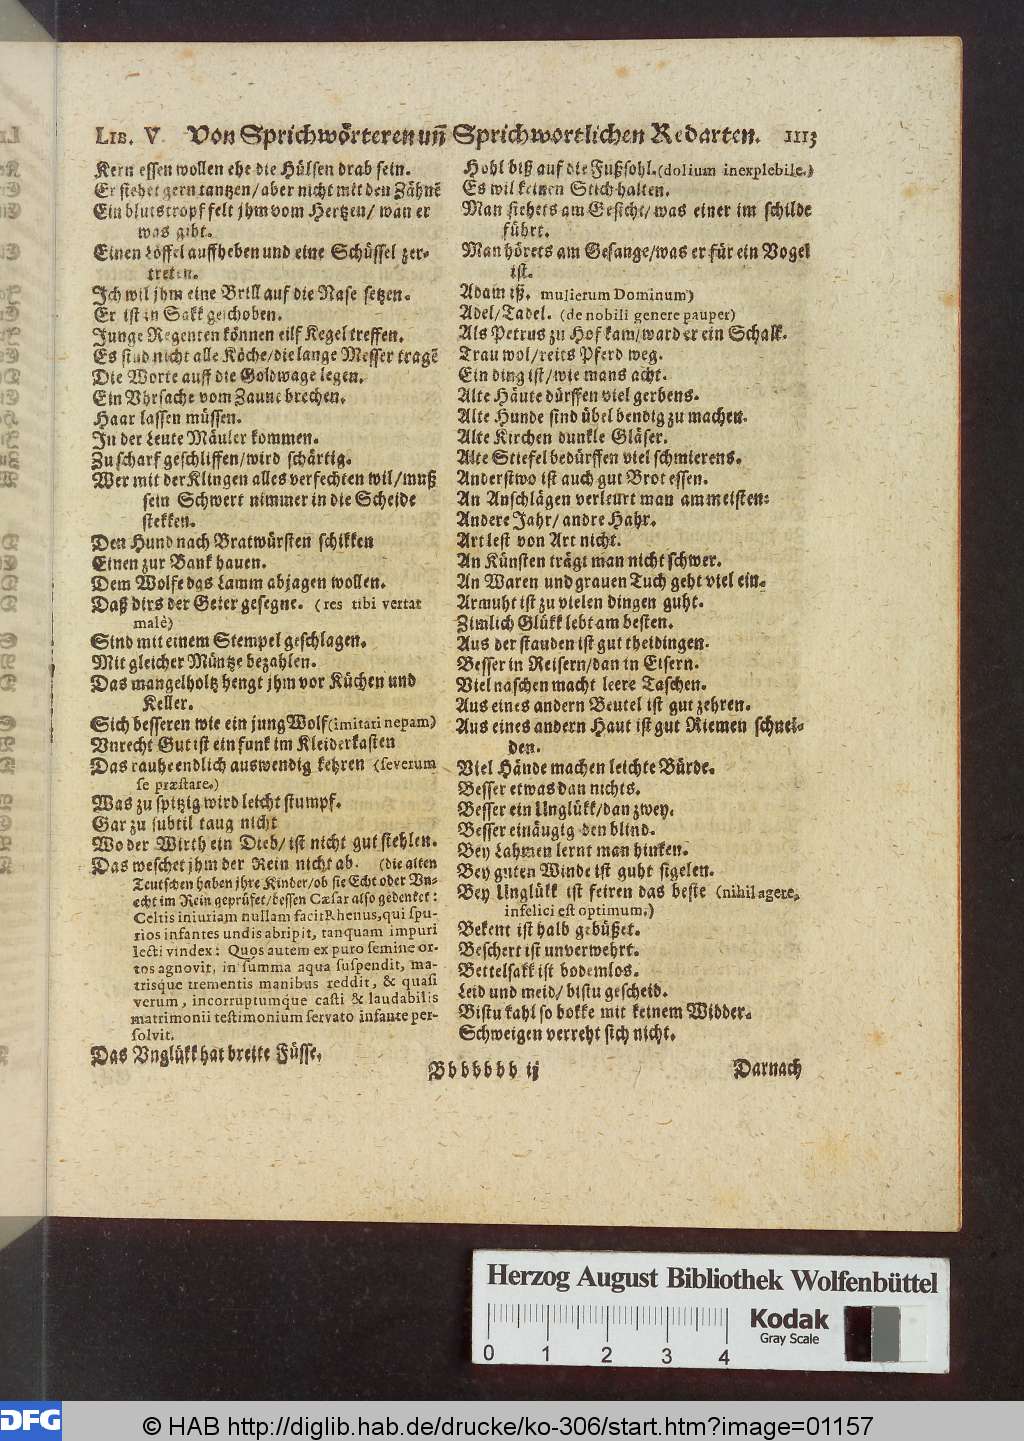 LIB. V Von Sprichwörteren uñ Sprichwortlichen Redarten. 1113
Kern essen wollen ehe die Hülsen drab sein.
Er stehet gern tantzen/aber nicht mit den Zähnẽ
Ein blutstropf felt jhm vom Hertzen/ wan er
was gibt.
Einen Löffel auffheben und eine Schüssel zer-
treten.
Ich wil jhm eine Brill auf die Nase setzen.
Er ist in Sakk geschoben.
Junge Regenten können eilf Kegel treffen.
Es sind nicht alle Köche/die lange Messer tragẽ
Die Worte auff die Goldwage legen.
Ein Vhrsache vom Zaune brechen.
Haar lassen müssen.
In der Leute Mäuler kommen.
Zu scharf geschliffen/wird schärtig.
Wer mit der Klingen alles verfechten wil/muß
sein Schwert nimmer in die Scheide
stekken.
Den Hund nach Bratwürsten schikken
Einen zur Bank hauen.
Dem Wolfe das Lamm abjagen wollen.
Daß dirs der Geier gesegne. (res tibi vertat
malè)
Sind mit einem Stempel geschlagen.
Mit gleicher Müntze bezahlen.
Das mangelholtz hengt jhm vor Küchen und
Keller.
Sich besseren wie ein jung Wolf (imitari nepam)
Vnrecht Gut ist ein funk im Kleiderkasten
Das rauhe endlich auswendig kehren (severum
se præstare.)
Was zu spitzig wird leicht stumpf.
Gar zu subtil taug nicht
Wo der Wirth ein Dieb/ ist nicht gut stehlen.
Das weschet jhm der Rein nicht ab. (die alten
Teutschen haben jhre Kinder/ob sie Echt oder Vn-
echt im Rein geprüfet/dessen Cæsar also gedenket:
Celtis iniuriam nullam facit Rhenus, qui spu-
rios infantes undis abripit, tanquam impuri
lecti vindex: Quos autem ex puro semine or-
tos agnovit, in summa aqua suspendit, ma-
trisque trementis manibus reddit, & quasi
verum, incorruptumque casti & laudabilis
matrimonii testimonium servato infante per-
solvit.
Das Vnglükk hat breite Füsse.
Hohl biß auf die Fußsohl. (dolium inexplebile.)
Es wil keinen Stich halten.
Man siehets am Gesicht/ was einer im schilde
führt.
Man hörets am Gesange/was er für ein Vogel
ist.
Adam iß. mulierum Dominum)
Adel/Tadel. (de nobili genere pauper)
Als Petrus zu Hof kam/ward er ein Schalk.
Trau wol/reits Pferd weg.
Ein ding ist/wie mans acht.
Alte Häute dürffen viel gerbens.
Alte Hunde sind übel bendig zu machen.
Alte Kirchen dunkle Gläser.
Alte Stiefel bedürffen viel schmierens.
Anderstwo ist auch gut Brot essen.
An Anschlägen verleurt man am meisten:
Andere Jahr/ andre Hahr.
Art lest von Art nicht.
An Künsten trägt man nicht schwer.
An Waren und grauen Tuch geht viel ein.
Armuht ist zu vielen dingen guht.
Zimlich Glükk lebt am besten.
Aus der stauden ist gut theidingen.
Besser in Reisern/dan in Eisern.
Viel naschen macht leere Taschen.
Aus eines andern Beutel ist gut zehren.
Aus eines andern Haut ist gut Riemen schnei-
den.
Viel Hände machen leichte Bürde.
Besser etwas dan nichts.
Besser ein Unglükk/dan zwey.
Besser einäugig den blind.
Bey Lahmen lernt man hinken.
Bey guten Winde ist guht sigelen.
Bey Unglükk ist feiren das beste (nihil agere,
infelici est optimum.)
Bekent ist halb gebüßet.
Beschert ist unverwehrt.
Bettelsakk ist bodemlos.
Leid und meid/ bistu gescheid.
Bistu kahl so bokke mit keinem Widder.
Schweigen verreht sich nicht.
Bbbbbbb ij
Darnach
Herzog August Bibliothek Wolfenbüttel
0 1 2 3 4
Kodak
Gray Scale
DFG
© HAB http://diglib.hab.de/drucke/ko-306/start.htm?image=01157